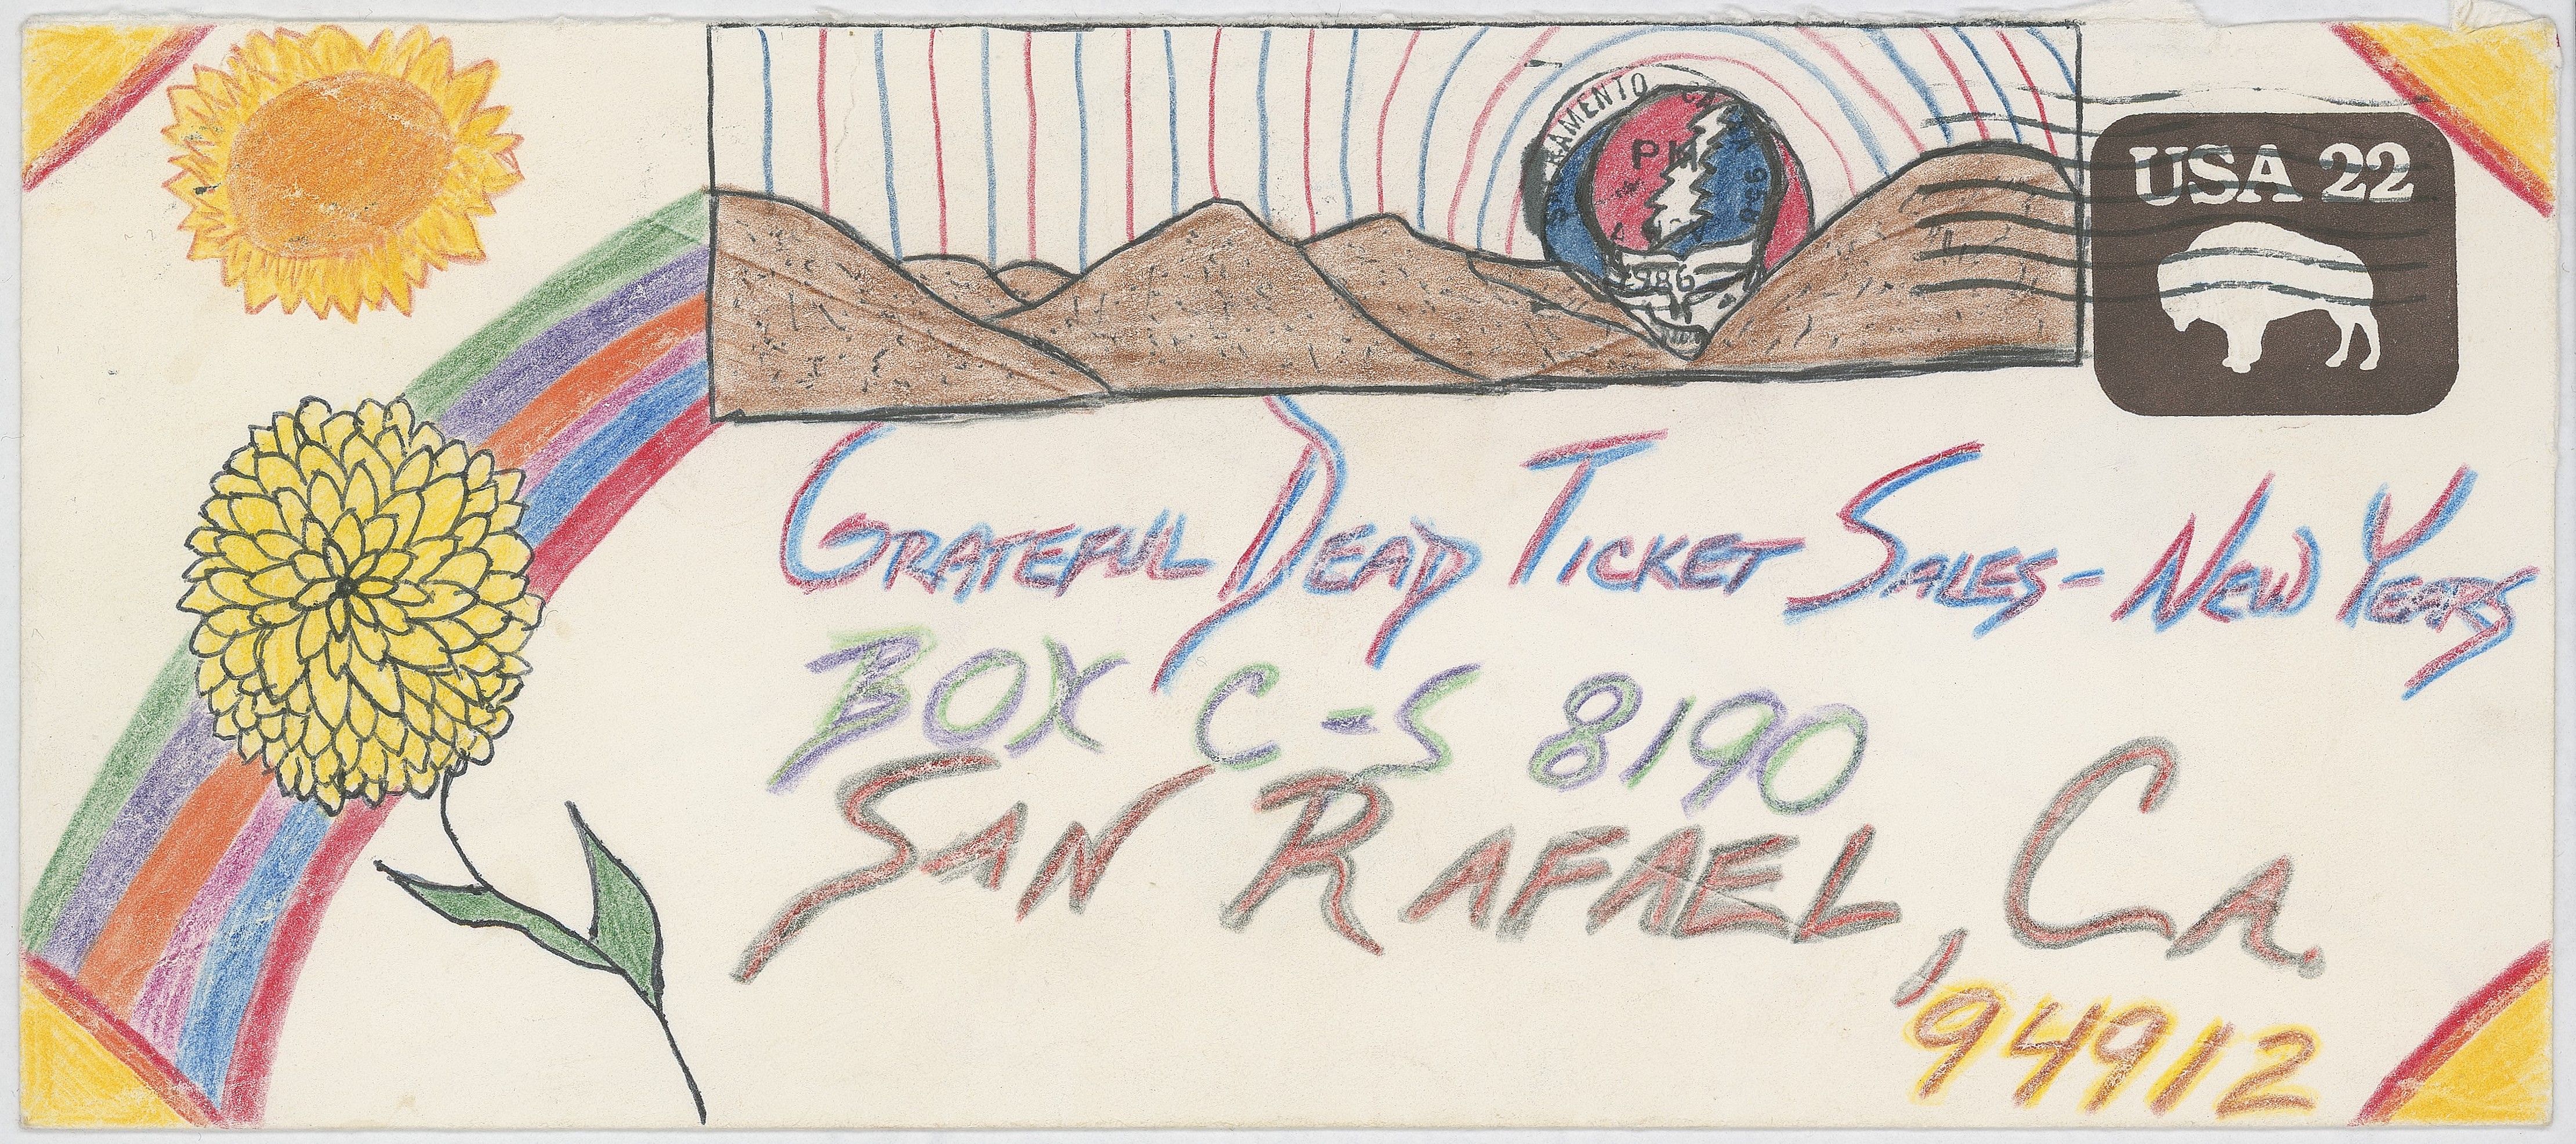 SACRAMENTO CA
PM
1986
USA 22
GRATEFUL DEAD TICKET SALES - NEW YEARS
BOX C-S 8190
SAN RAFAEL, CA.
94912